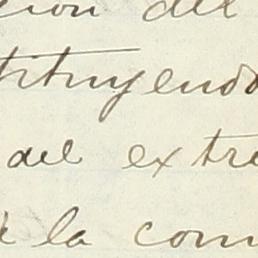 cion del
tituyendo
del extre
la com